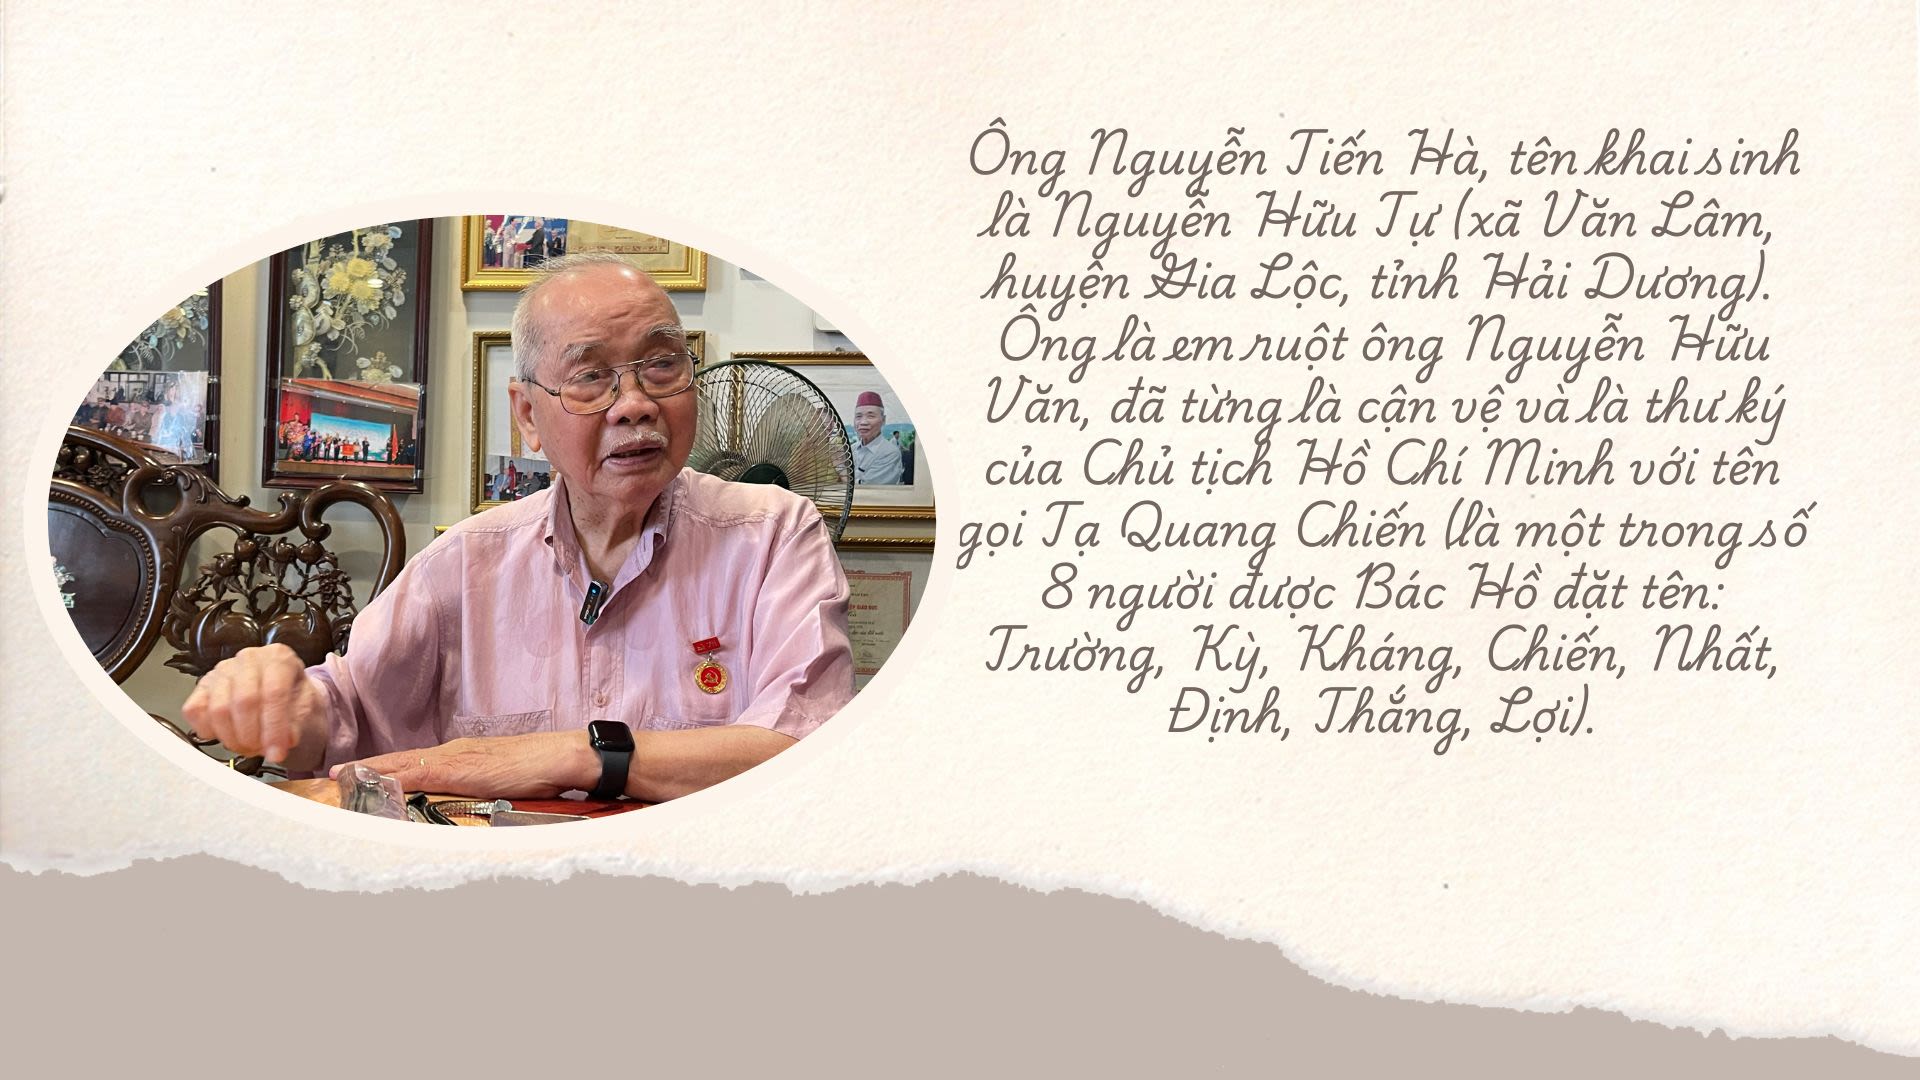 Ông Nguyễn Tiến Hà, tên khai sinh
là Nguyễn Hữu Tự (xã Văn Lâm,
huyện Gia Lộc, tỉnh Hải Dương).
Ông là em ruột ông Nguyễn Hữu
Văn, đã từng là cận vệ và là thư ký
của Chủ tịch Hồ Chí Minh với tên
gọi Tạ Quang Chiến (là một trong số
8 người được Bác Hồ đặt tên:
Trường, Kỳ, Kháng, Chiến, Nhất,
Định, Thắng, Lợi).